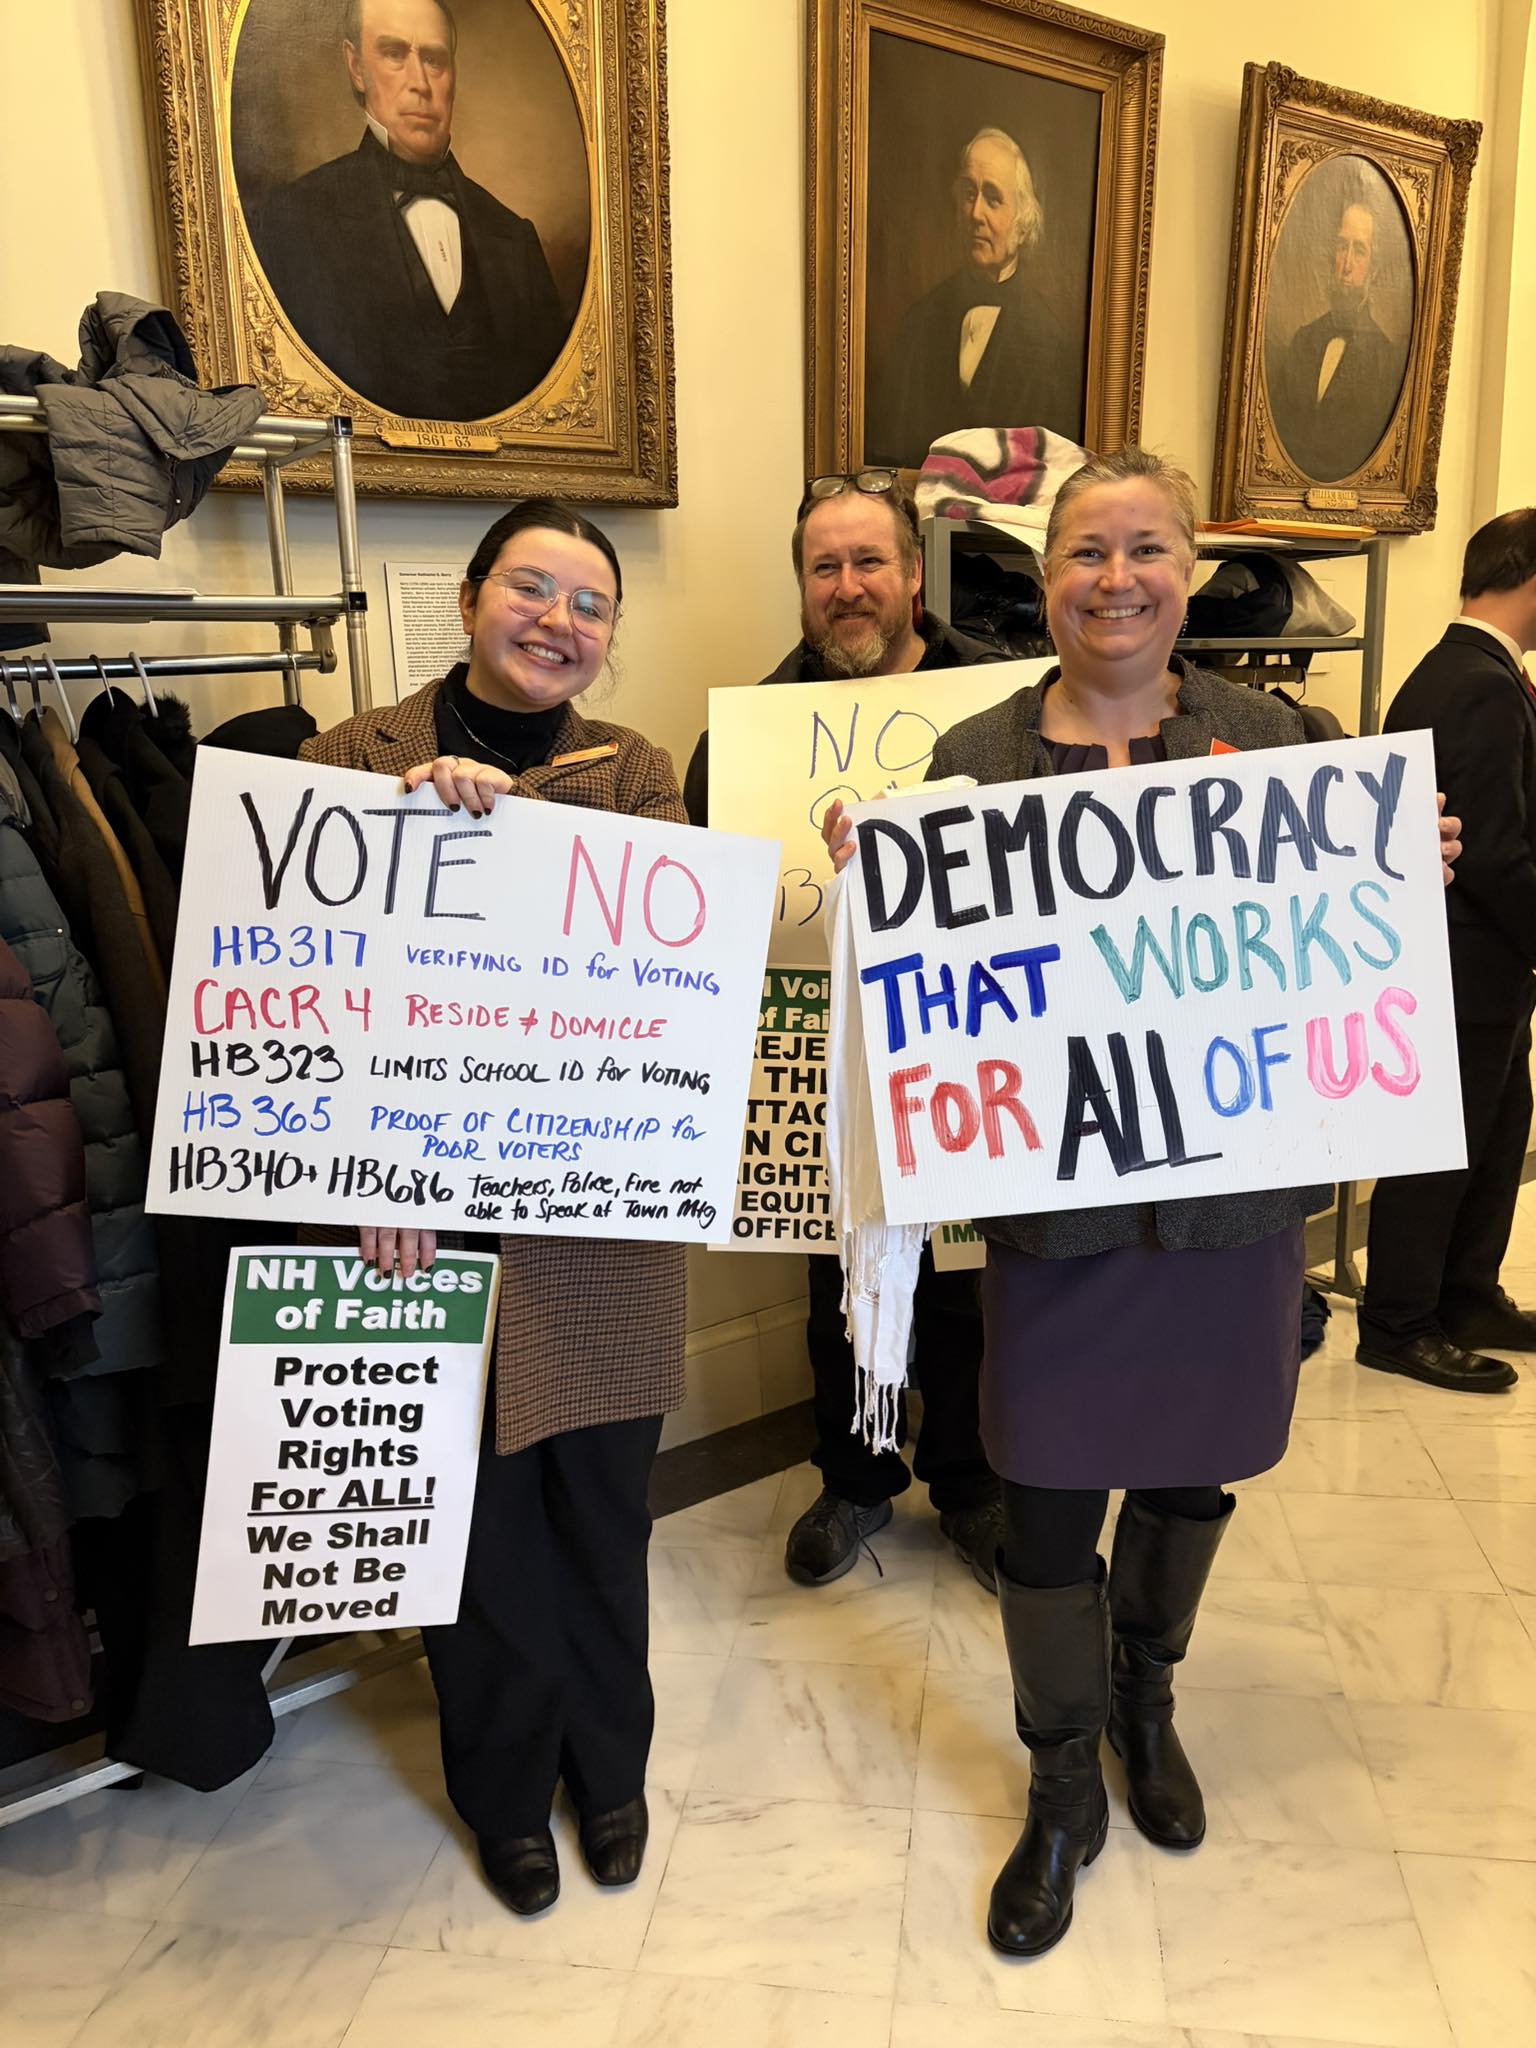 NATHANIEL S. BERRY
1861-63
WILLIAM HAILE
Governor Nathaniel S. Berry
VOTE NO
HB317 VERIFYING ID for VOTING
CACR 4 RESIDE ≠ DOMICLE
HB323 LIMITS SCHOOL ID for VOTING
HB 365 PROOF OF CITIZENSHIP for
POOR VOTERS
HB340+ HB686 Teachers, Police, Fire not
able to Speak at Town Mtg
NH Voices
of Faith
Protect
Voting
Rights
For ALL!
We Shall
Not Be
Moved
NO
DEMOCRACY
THAT WORKS
FOR ALL OF US
Voi
of Fai
EJE
TH
TTAC
N CI
IGHTS
EQUIT
OFFICE
IM